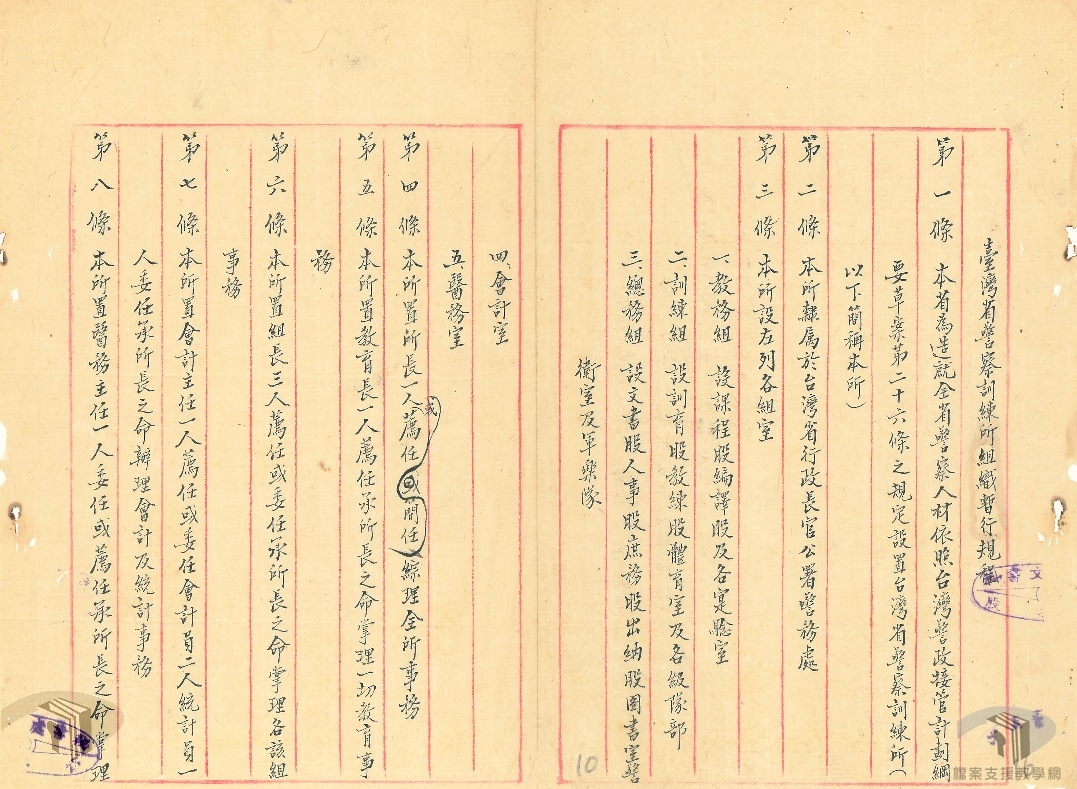 臺灣省警察訓練所組織暫行規程
第一條 本省為造就全省警察人材依照台灣警政接管計劃綱
要草案第二十六條之規定設置台灣省警察訓練所（
以下簡稱本所）
第二條 本所隸属於台灣省行政長官公署警務處
第三條 本所設左列各組室
一、教務組 設課程股編譯股及各寔驗室
二、訓練組 設訓育股教練股體育室及各級隊部
三、總務組 設文書股人事股庶務股出納股圖書室警
衛室及軍樂隊
四、會計室
五、醫務室
第四條 本所置所長一人薦任或簡任綜理全所事務
或
第五條 本所置教育長一人薦任承所長之命掌理一切教育事
務
第六條 本所置組長三人薦任或委任承所長之命掌理各該組
事務
第七條 本所置會計主任一人薦任或委任會計員二人統計員一
人委任承所長之命辦理會計及統計事務
第八條 本所置醫務主任一人委任或薦任承所長之命掌理
10
檔案支援教學網